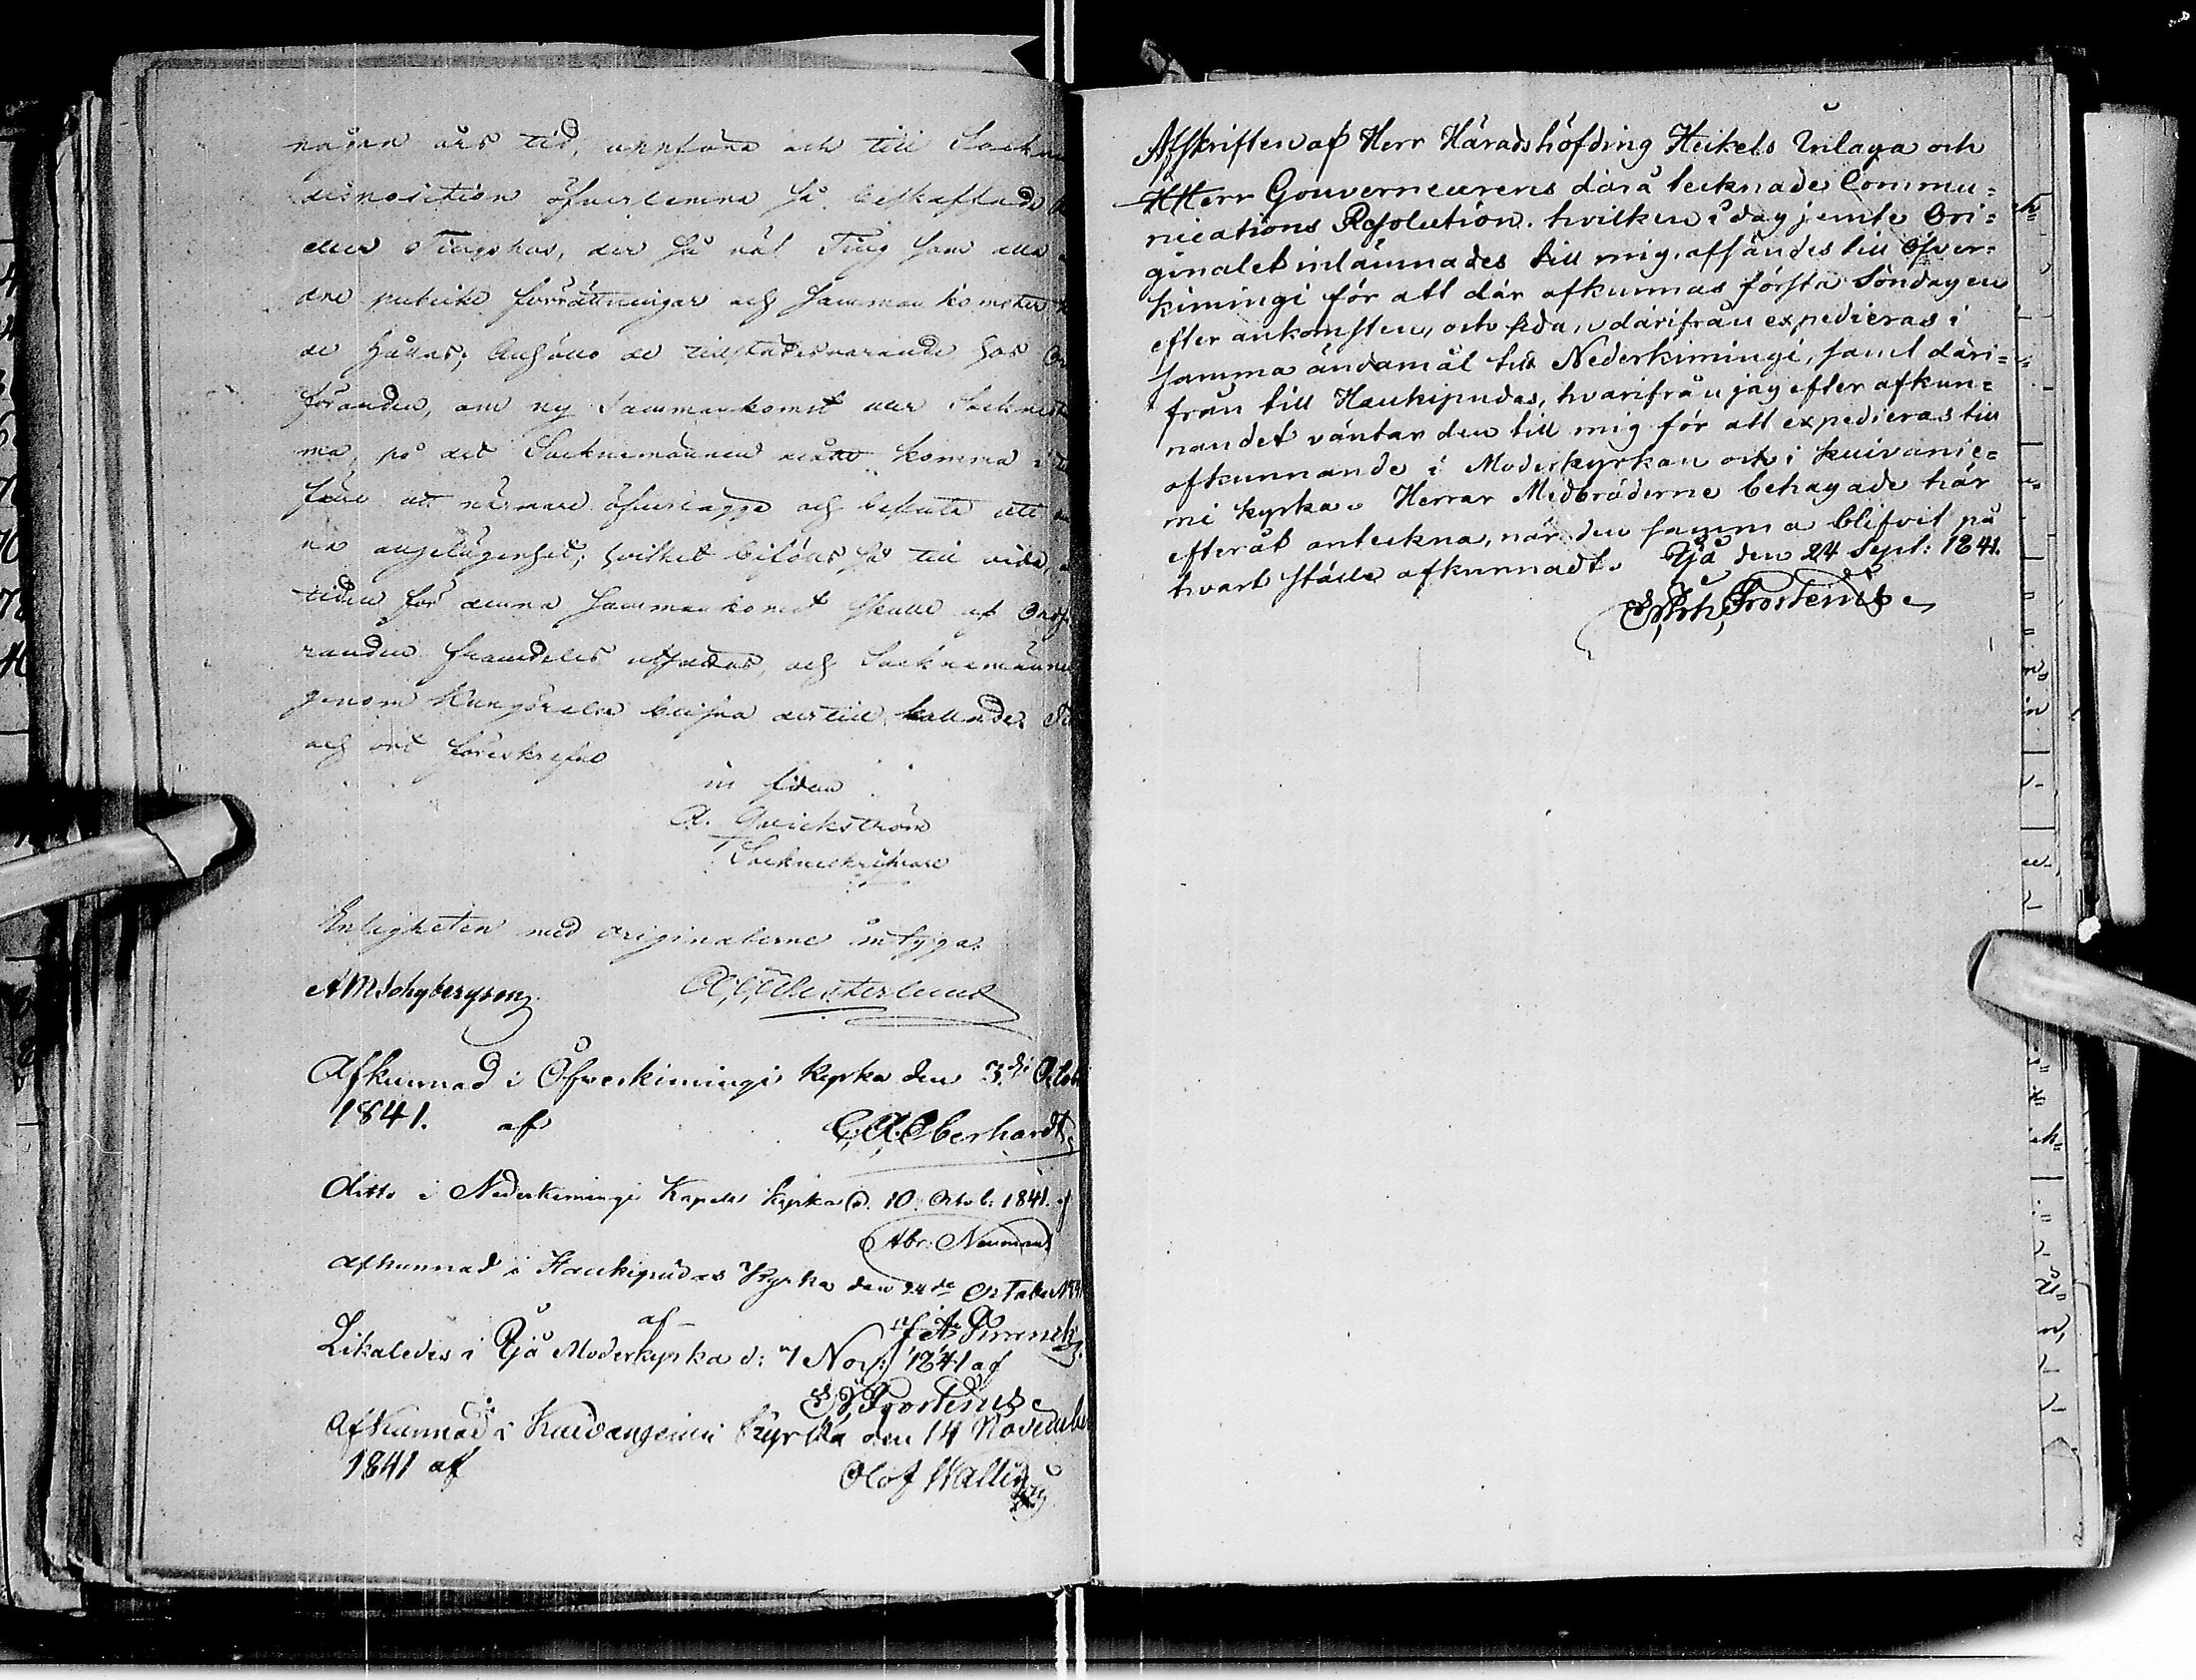 någon års tid, uppföra och till Sockne
disposition öfverlemna så beskaffade
eller Tingshus, der så väl Ting som
dre publike förrättningar och sammankomster
de hållas; Anhöllo de tillstädesvarande hos
föranden, om ny Sammankomst
ma, på det Socknemännen måtte komma i
fälle att närmare öfverlägga och besluta
na angelägenhet; hvilket bifölls, så till vida,
tiden för denna sammankomst skulle af Ordf
randen framdeles utsättas, och Socknemännen
genom Kungörelse blifva dertill kallade.
och ort föreskrefne
in fidem
A. Qvickström
Sockneskrifvare
Enligheten med originalerne intyga.
AMSchybergson A. Westerlund
Afkunnad i Öfverkimingi Kyrka den 3:di Octob
1841. af C. A. Eberhardt
Ditto i Nederkimingi Kapells kyrka d. 10 Octob: 1841. af
Abr: Neuman
Afkunnad i Haukipudas Kyrka den 24de October 1841
af
Likaledes i Ijå Moderkyrka d: 7 Nov: 1841 af
Frosterus
Afkunnad i Kuivaniemi kyrka den 14 November
1841 af Olof Wallin
Afskriften af Herr Häradshöfding Heikels Inlaga och
Herr Gouverneurens därå tecknade Commu=
nications Resolution. hvilken i dag jemte Ori=
ginalet inlämnades till mig, afsändes till Öfver=
kimingi för att där afkunnas första Söndagen
efter ankomsten, och sedan därifrån expedieras i
samma ändamål till Nederkimingi, samt däri=
från till Haukipudas, hvarifrån jag efter afkun=
nandet väntar den till mig för att expedieras till
afkunnande i Moderkyrkan och i Kuivanie=
mi kyrka. Herrar Medbröderne behagade här
efteråt anteckna, när den samma blifvit på
hvart ställe afkunnadt. Ijå den 24 Sept: 1841.
Frosterus